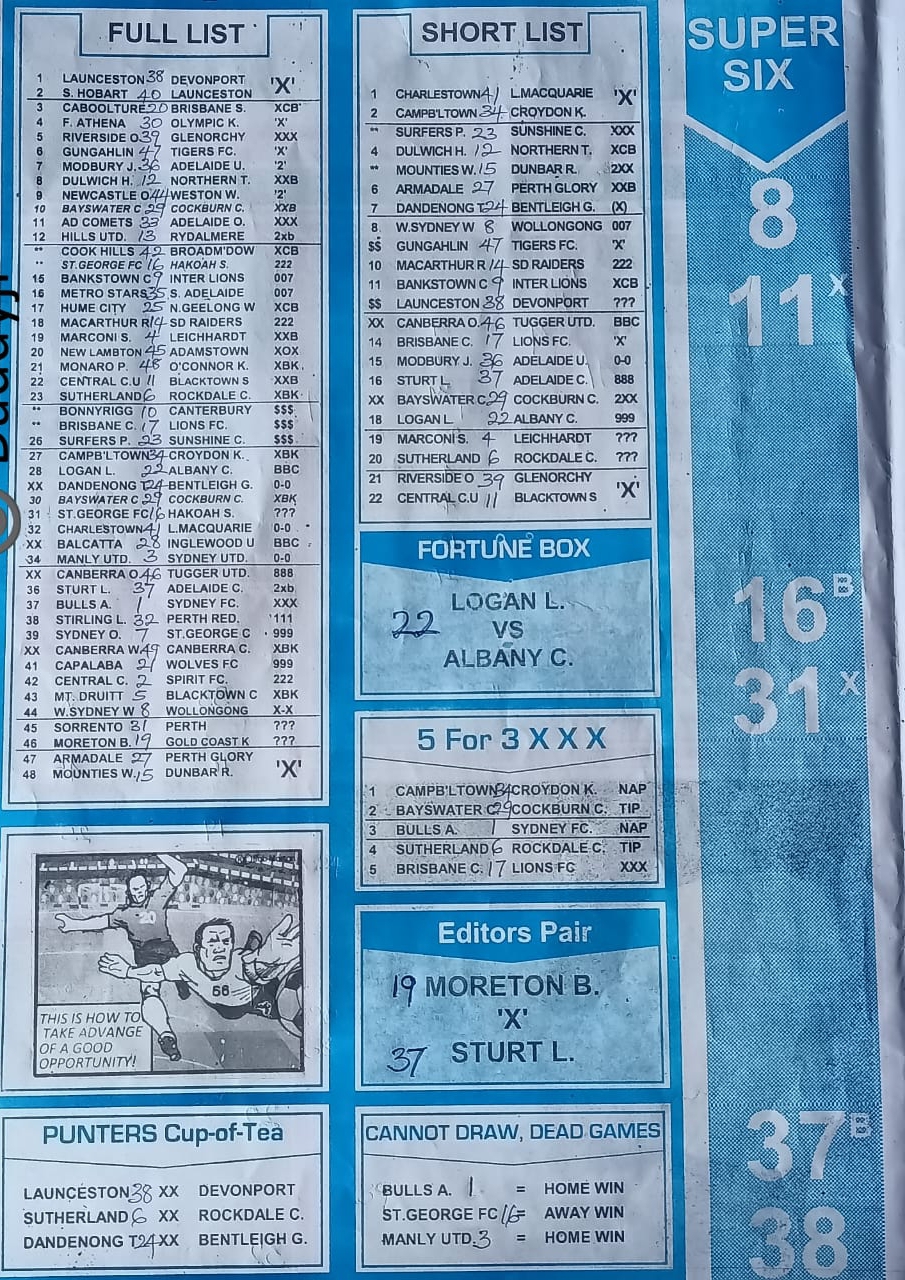 FULL LIST
1 LAUNCESTON 38 DEVONPORT 'X'
2 S. HOBART 40 LAUNCESTON
3 CABOOLTURE 20 BRISBANE S. XCB'
4 F. ATHENA 30 OLYMPIC K. 'X'
5 RIVERSIDE O 39 GLENORCHY XXX
6 GUNGAHLIN 47 TIGERS FC. 'X'
7 MODBURY J. 36 ADELAIDE U. '2'
8 DULWICH H. 12 NORTHERN T. XXB
9 NEWCASTLE O 44 WESTON W. '2'
10 BAYSWATER C 29 COCKBURN C. XXB
11 AD COMETS 33 ADELAIDE O. XXX
12 HILLS UTD. 13 RYDALMERE 2xb
** COOK HILLS 42 BROADM'DOW XCB
** ST.GEORGE FC 16 HAKOAH S. 222
15 BANKSTOWN C 9 INTER LIONS 007
16 METRO STARS 35 S. ADELAIDE 007
17 HUME CITY 25 N.GEELONG W XCB
18 MACARTHUR R 14 SD RAIDERS 222
19 MARCONI S. 4 LEICHHARDT XXB
20 NEW LAMBTON 45 ADAMSTOWN XOX
21 MONARO P. 48 O'CONNOR K. XBK.
22 CENTRAL C.U 11 BLACKTOWN S XXB
23 SUTHERLAND 6 ROCKDALE C. XBK
** BONNYRIGG 10 CANTERBURY $$$
** BRISBANE C. 17 LIONS FC. $$$
26 SURFERS P. 23 SUNSHINE C. $$$
27 CAMPB'LTOWN 34 CROYDON K. XBK
28 LOGAN L. 22 ALBANY C. BBC
XX DANDENONG T 24 BENTLEIGH G. 0-0
30 BAYSWATER C 29 COCKBURN C. XBK
31 ST.GEORGE FC 16 HAKOAH S. ???
32 CHARLESTOWN 41 L.MACQUARIE 0-0
XX BALCATTA 28 INGLEWOOD U BBC
34 MANLY UTD. 3 SYDNEY UTD. 0-0
XX CANBERRA O. 46 TUGGER UTD. 888
36 STURT L. 37 ADELAIDE C. 2xb
37 BULLS A. 1 SYDNEY FC. XXX
38 STIRLING L. 32 PERTH RED. '111
39 SYDNEY O. 7 ST.GEORGE C 999
XX CANBERRA W. 49 CANBERRA C. XBK
41 CAPALABA 21 WOLVES FC 999
42 CENTRAL C. 2 SPIRIT FC. 222
43 MT. DRUITT 5 BLACKTOWN C XBK
44 W.SYDNEY W 8 WOLLONGONG X-X
45 SORRENTO 31 PERTH ???
46 MORETON B. 19 GOLD COAST K ???
47 ARMADALE 27 PERTH GLORY 'X'
48 MOUNTIES W. 15 DUNBAR R.
THIS IS HOW TO
TAKE ADVANGE
OF A GOOD
OPPORTUNITY!
20
56
PUNTERS Cup-of-Tea
LAUNCESTON 38 XX DEVONPORT
SUTHERLAND 6 XX ROCKDALE C.
DANDENONG T 24 XX BENTLEIGH G.
SHORT LIST
1 CHARLESTOWN 41 L.MACQUARIE 'X'
2 CAMPB'LTOWN 34 CROYDON K.
** SURFERS P. 23 SUNSHINE C. XXX
4 DULWICH H. 12 NORTHERN T. XCB
** MOUNTIES W. 15 DUNBAR R. 2XX
6 ARMADALE 27 PERTH GLORY XXB
7 DANDENONG T 24 BENTLEIGH G. (X)
8 W.SYDNEY W 8 WOLLONGONG 007
$$ GUNGAHLIN 47 TIGERS FC. 'X'
10 MACARTHUR R 14 SD RAIDERS 222
11 BANKSTOWN C 9 INTER LIONS XCB
$$ LAUNCESTON 38 DEVONPORT ???
XX CANBERRA O. 46 TUGGER UTD. BBC
14 BRISBANE C. 17 LIONS FC. 'X'
15 MODBURY J. 36 ADELAIDE U. 0-0
16 STURT L. 37 ADELAIDE C. 888
XX BAYSWATER C. 29 COCKBURN C. 2XX
18 LOGAN L. 22 ALBANY C. 999
19 MARCONI S. 4 LEICHHARDT ???
20 SUTHERLAND 6 ROCKDALE C. ???
21 RIVERSIDE O 39 GLENORCHY 'X'
22 CENTRAL C.U 11 BLACKTOWN S
FORTUNE BOX
LOGAN L.
22 VS
ALBANY C.
5 For 3 X X X
1 CAMPB'LTOWN 34 CROYDON K. NAP
2 BAYSWATER C. 29 COCKBURN C. TIP
3 BULLS A. 1 SYDNEY FC. NAP
4 SUTHERLAND 6 ROCKDALE C. TIP
5 BRISBANE C. 17 LIONS FC XXX
Editors Pair
19 MORETON B.
'X'
37 STURT L.
CANNOT DRAW, DEAD GAMES
BULLS A. 1 = HOME WIN
ST.GEORGE FC 16 = AWAY WIN
MANLY UTD. 3 = HOME WIN
SUPER
SIX
8
11 X
16 B
31 X
37 B
38